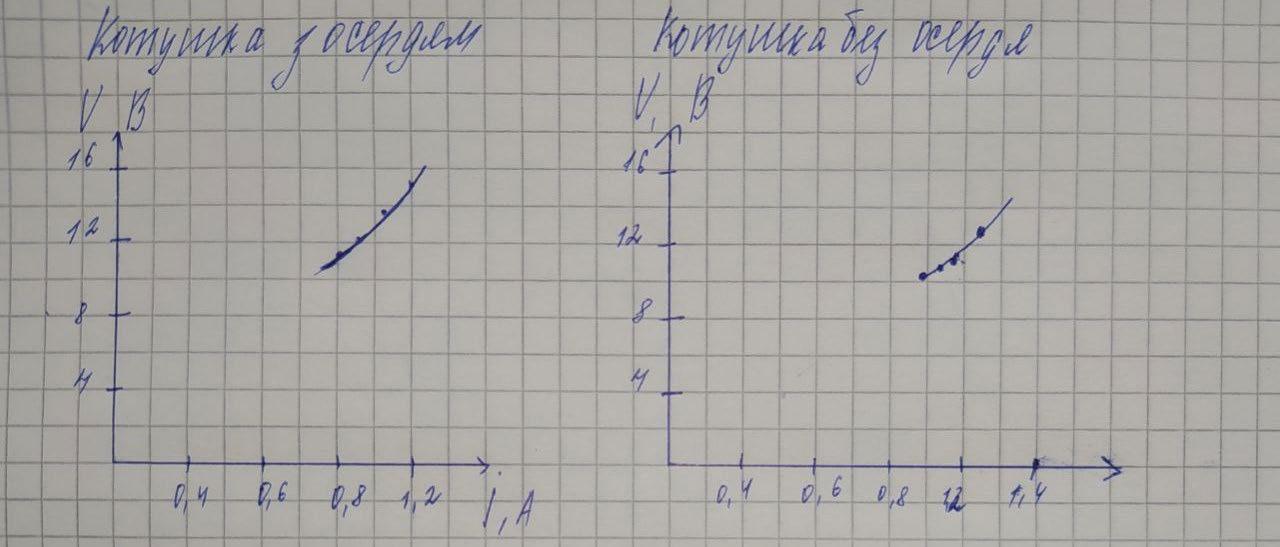 Котушка з осердям
V В
16
12
8
4
0,4 0,6 0,8 1,2 I, А
Котушка без осердя
V, В
16
12
8
4
0,4 0,6 0,8 12 1,4